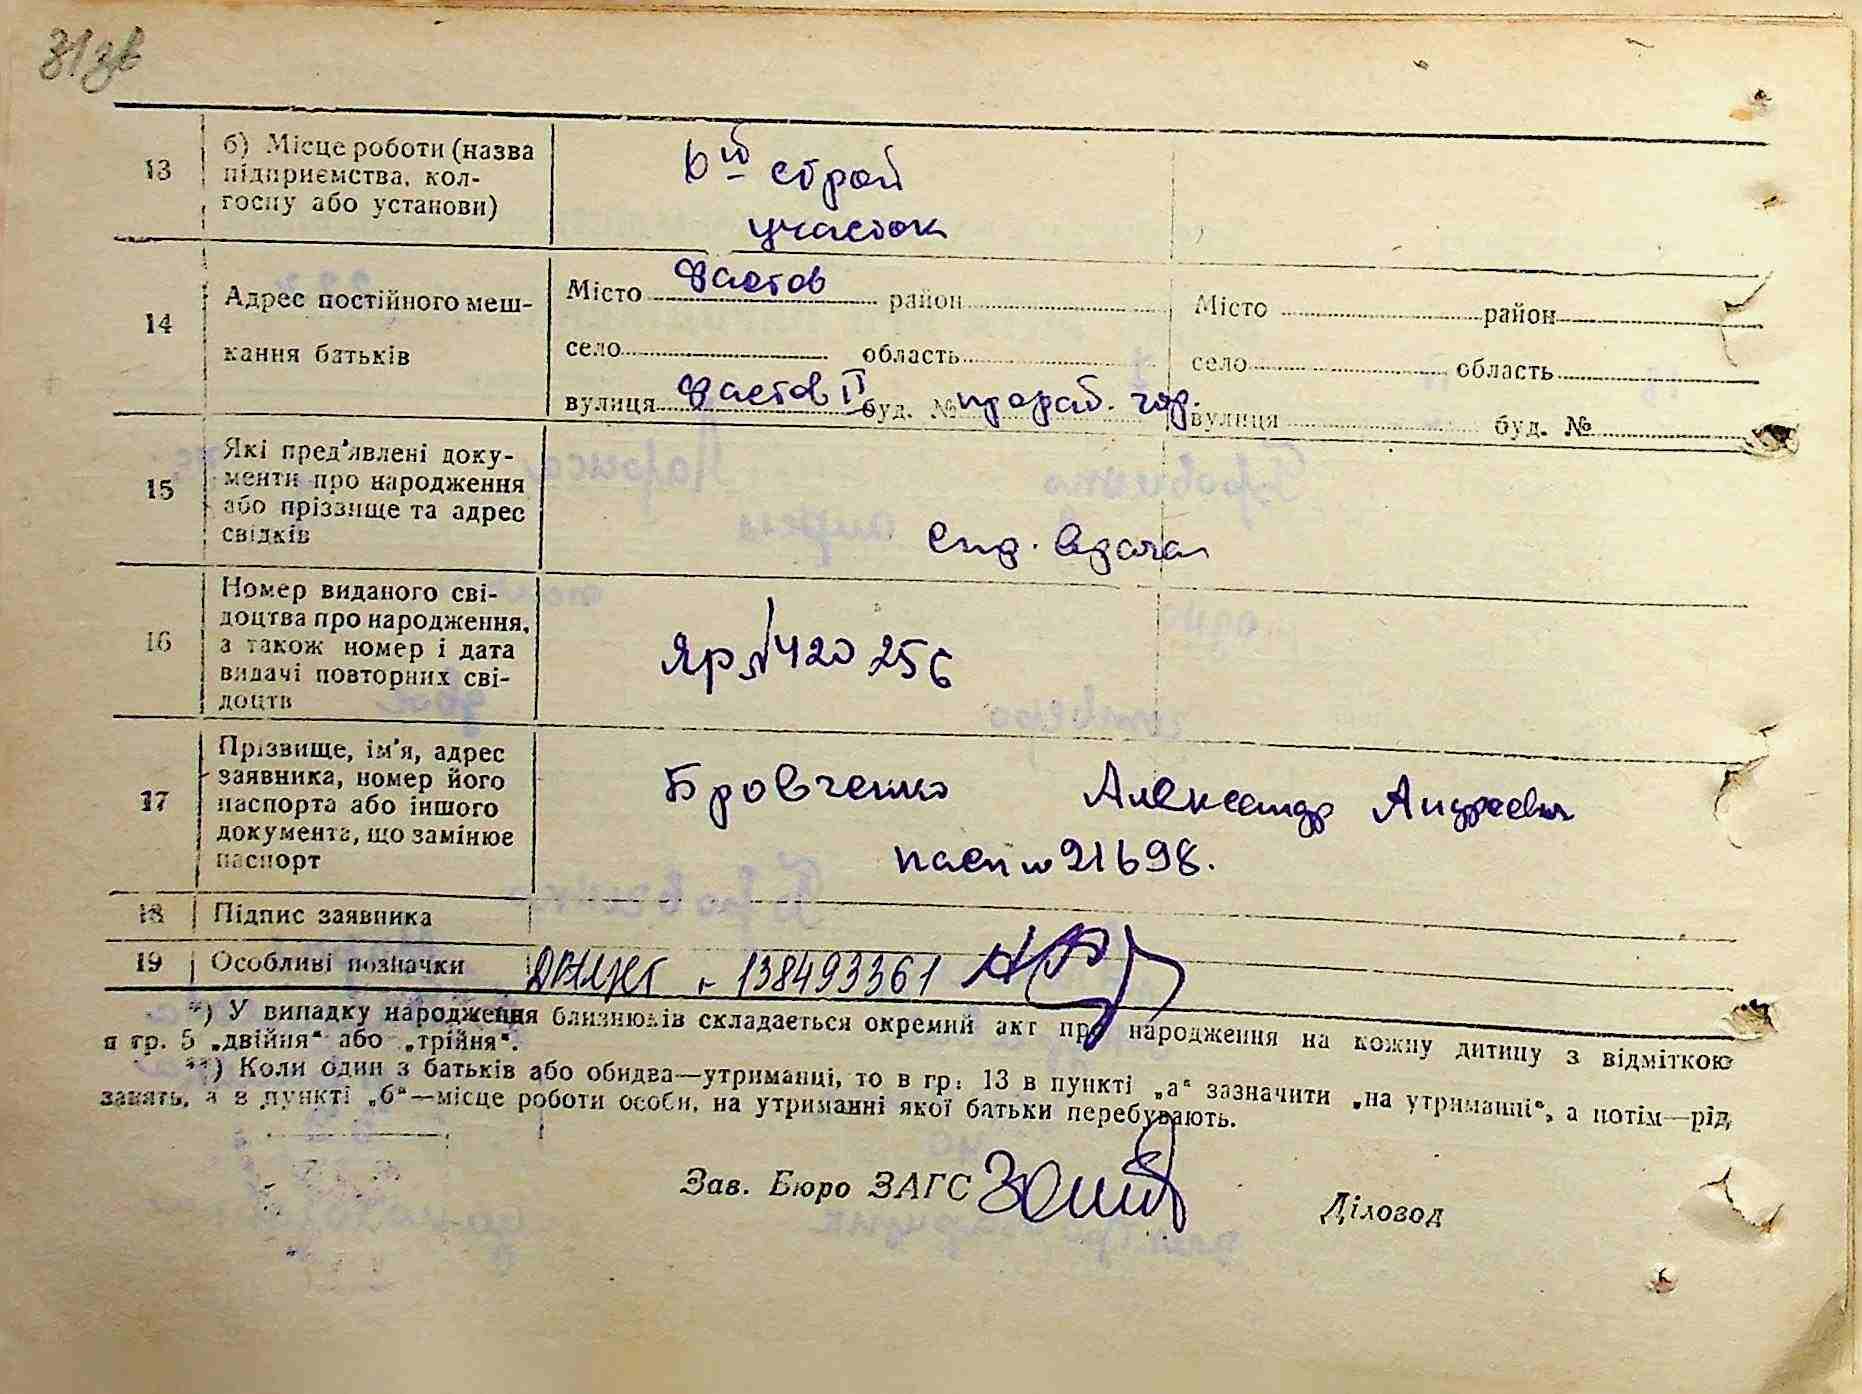 31зв
13
б) Місце роботи (назва
підприємства, кол-
госпу або установи)
6ий строй
участок
14
Адрес постійного меш-
кання батьків
Місто Фастов район
село область
вулиця Фастов II буд. №
Місто район
село область
вулиця буд. №
15
Які пред'явлені доку-
менти про народження
або прізвище та адрес
свідків
16
Номер виданого сві-
доцтва про народження,
а також номер і дата
видачі повторних сві-
доцтв
420256
17
Прізвище, ім'я, адрес
заявника, номер його
паспорта або іншого
документа, що замінює
паспорт
Бровченко Александр Андреевич
пасп № 21698.
18 Підпис заявника
19 Особливі позначки
138493361
*) У випадку народження близнюків складається окремий акт про народження на кожну дитину з відміткою
в гр. 5 „двійня“ або „трійня“.
**) Коли один з батьків або обидва—утриманці, то в гр. 13 в пункті „а“ зазначити „на утриманні“, а потім—рід
занять, а в пункті „б“—місце роботи особи, на утриманні якої батьки перебувають.
Зав. Бюро ЗАГС
Діловод